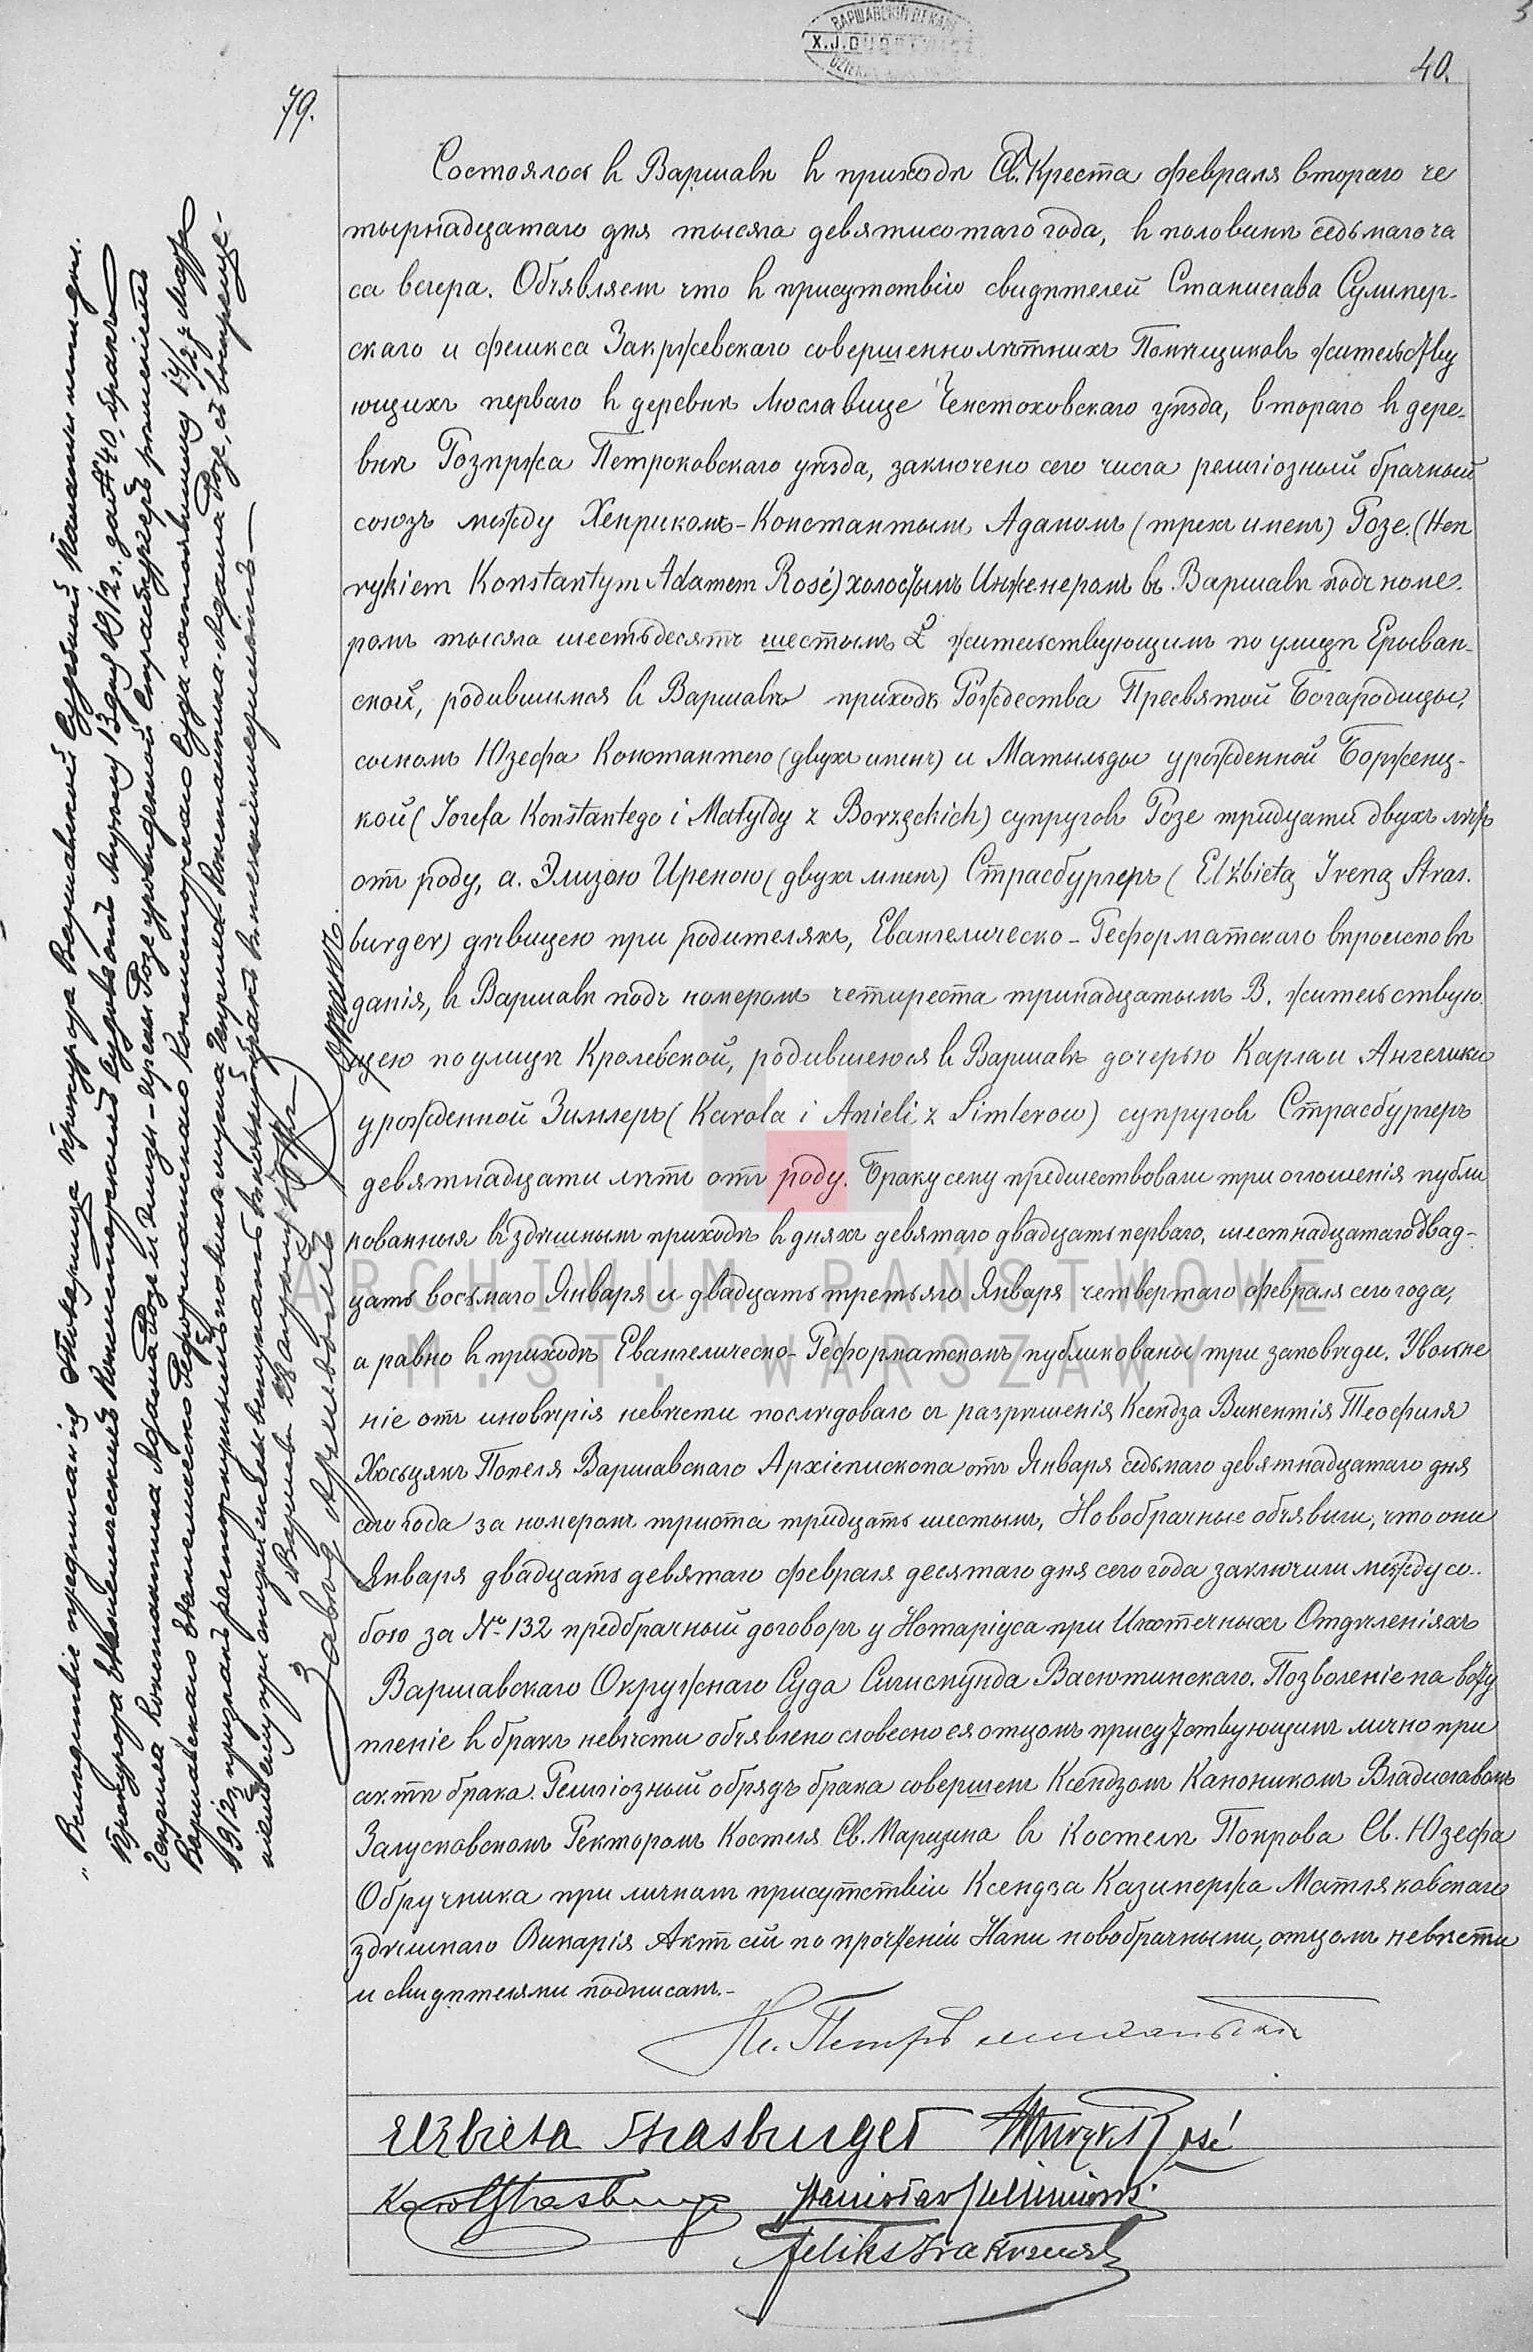 ВАРШАВСКІЙ ДЕКАН
X.J.DUDREWICZ
40.
79.
Состоялось въ Варшавѣ въ приходѣ Св. Креста февраля втораго че
тырнадцатаго дня тысяча девятисотаго года, въ половинѣ седьмаго ча
са вечера. Объявляемъ что въ присутствіи свидѣтелей Станислава Сулимер-
скаго и Феликса Закржевскаго совершеннолѣтнихъ Помѣщиковъ жительству
ющихъ перваго въ деревнѣ Мославице Ченстоховскаго уѣзда, втораго въ дере-
внѣ Розпржа Петроковскаго уѣзда, заключенъ сего числа религіозный брачный
союзъ между Хенрикомъ-Константымъ Адамомъ (трехъ именъ) Розе. (Hen
rykiem Konstantym Adamem Rosé) холостымъ Инженеромъ въ Варшавѣ подъ номе-
ромъ тысяча шестьдесятъ шестымъ L жительствующимъ по улицѣ Ерыван-
ской, родившимся въ Варшавѣ приходѣ Рождества Пресвятой Богародицы,
сыномъ Юзефа Константего (двухъ именъ) и Матыльды урожденной Борженц-
кой (Jozefa Konstantego i Matyldy z Borzęckich) супруговъ Розе тридцати двухъ лѣтъ
отъ роду, а. Элизою Иреною (двухъ именъ) Страсбургеръ (Elżbietą Ireną Stras.
burger) дѣвицею при родителяхъ, Евангелическо-Реформатскаго вѣроисповѣ
данія, въ Варшавѣ подъ номеромъ четыреста тринадцатымъ B. жительствую
щею по улицѣ Кролевской, родившеюся въ Варшавѣ дочерью Карла и Ангелики
урожденной Зимлеръ (Karola i Anieli z Simlerow) супруговъ Страсбургеръ
девятнадцати лѣтъ отъ роду. Браку сему предшествовали три оглошенія публи
кованныя въ здѣшнымъ приходѣ въ дняхъ девятаго двадцать перваго, шестнадцатаго двад-
цать восьмаго Января и двадцать третьяго Января четвертаго февраля сего года,
а равно въ приходѣ Евангелическо-Реформатскомъ публикованы три заповѣди. Увольне
ніе отъ иновѣрія невѣсты послѣдовало съ разрѣшенія Ксендза Викентія Теофиля
Хосьцякъ Попеля Варшавскаго Архіепископа отъ Января седьмаго девятнадцатаго дня
сего года за номеромъ триста тридцать шестымъ, Новобрачные объявили, что они
Января двадцать девятаго февраля десятаго дня сего года заключили между со-
бою за № 132 предбрачный договоръ у Нотаріуса при Ипотечныхъ Отдѣленіяхъ
Варшавскаго Окружнаго Суда Сигисмунда Васютинскаго. Позволеніе на всту
пленіе въ бракъ невѣсти объявлено словесно ея отцомъ присутствующимъ лично при
актѣ брака. Религіозный обрядъ брака совершенъ Ксендзомъ Каноникомъ Владиславомъ
Залусковскомъ Ректоромъ Костела Св. Марцина въ Костелѣ Покрова Св. Юзефа
Обручника при личномъ присутствіи Ксендза Казимержа Матляковскаго
здѣшнаго Викарія Актъ сей по прочтеніи Нами новобрачными, отцомъ невѣсти
и свидѣтелями подписанъ.-
Кс. Петръ
Elżbieta Strasburger Henryk Rosé
Karol Strasburger Stanisław Sulimierski
Feliks Zakrzewski
„Вслѣдствіе предписанія Товарища прокурора Варшавской Судебной Палаты
Прокурора Евангелическихъ Консисторскихъ Судовъ отъ 13 дня 1912 г. за № 40, бракъ
Генриха Константина Адама Розе и Элизы-Ирены Розе урожденной Страсбургеръ рѣшеніемъ
Варшавскаго Евангелическо Реформатскаго Консисторскаго Суда состоявшимся
признанъ расторгнутымъ по винѣ мужа Генриха-Константина-Адама Розе, съ воспреще-
ніемъ
ARCHIWUM PAŃSTWOWE
M. ST. WARSZAWY